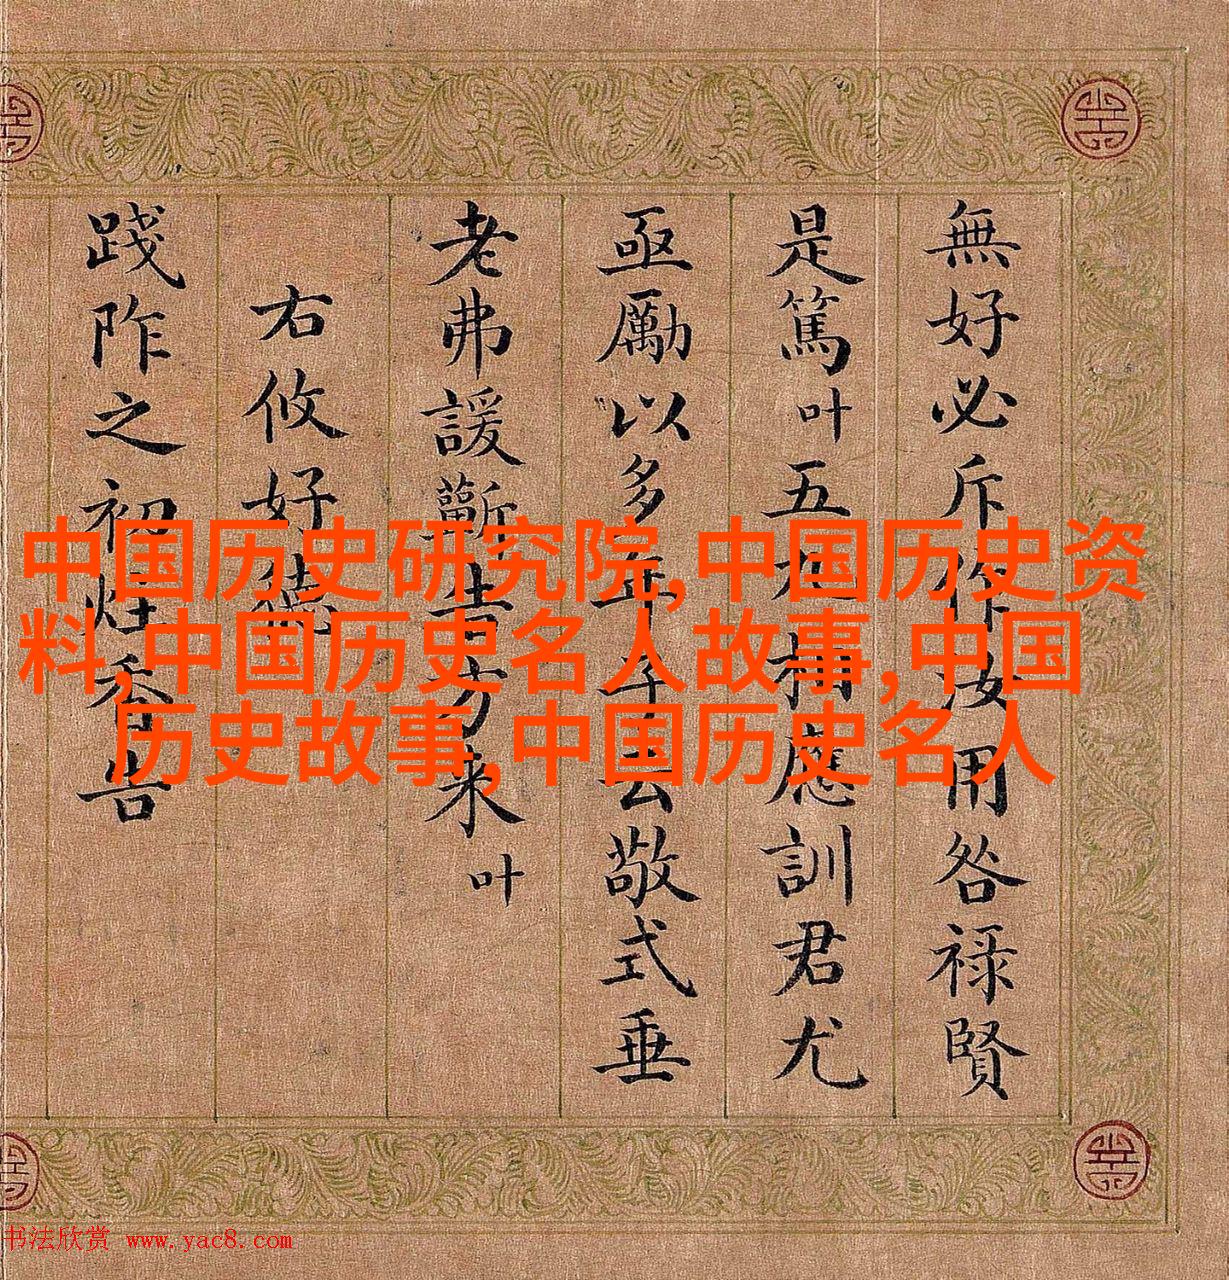 無好必斥作汝用咎禄賢
是篤叶五應訓君尤
亟勵以多年敬式垂
老弗諼蘄吉方来叶
右攸好德
踐阼之初炷香告
中国历史研究院,中国历史资
料,中国历史名人故事,中国
历史故事,中国历史名人
书法欣赏 www.yac8.com